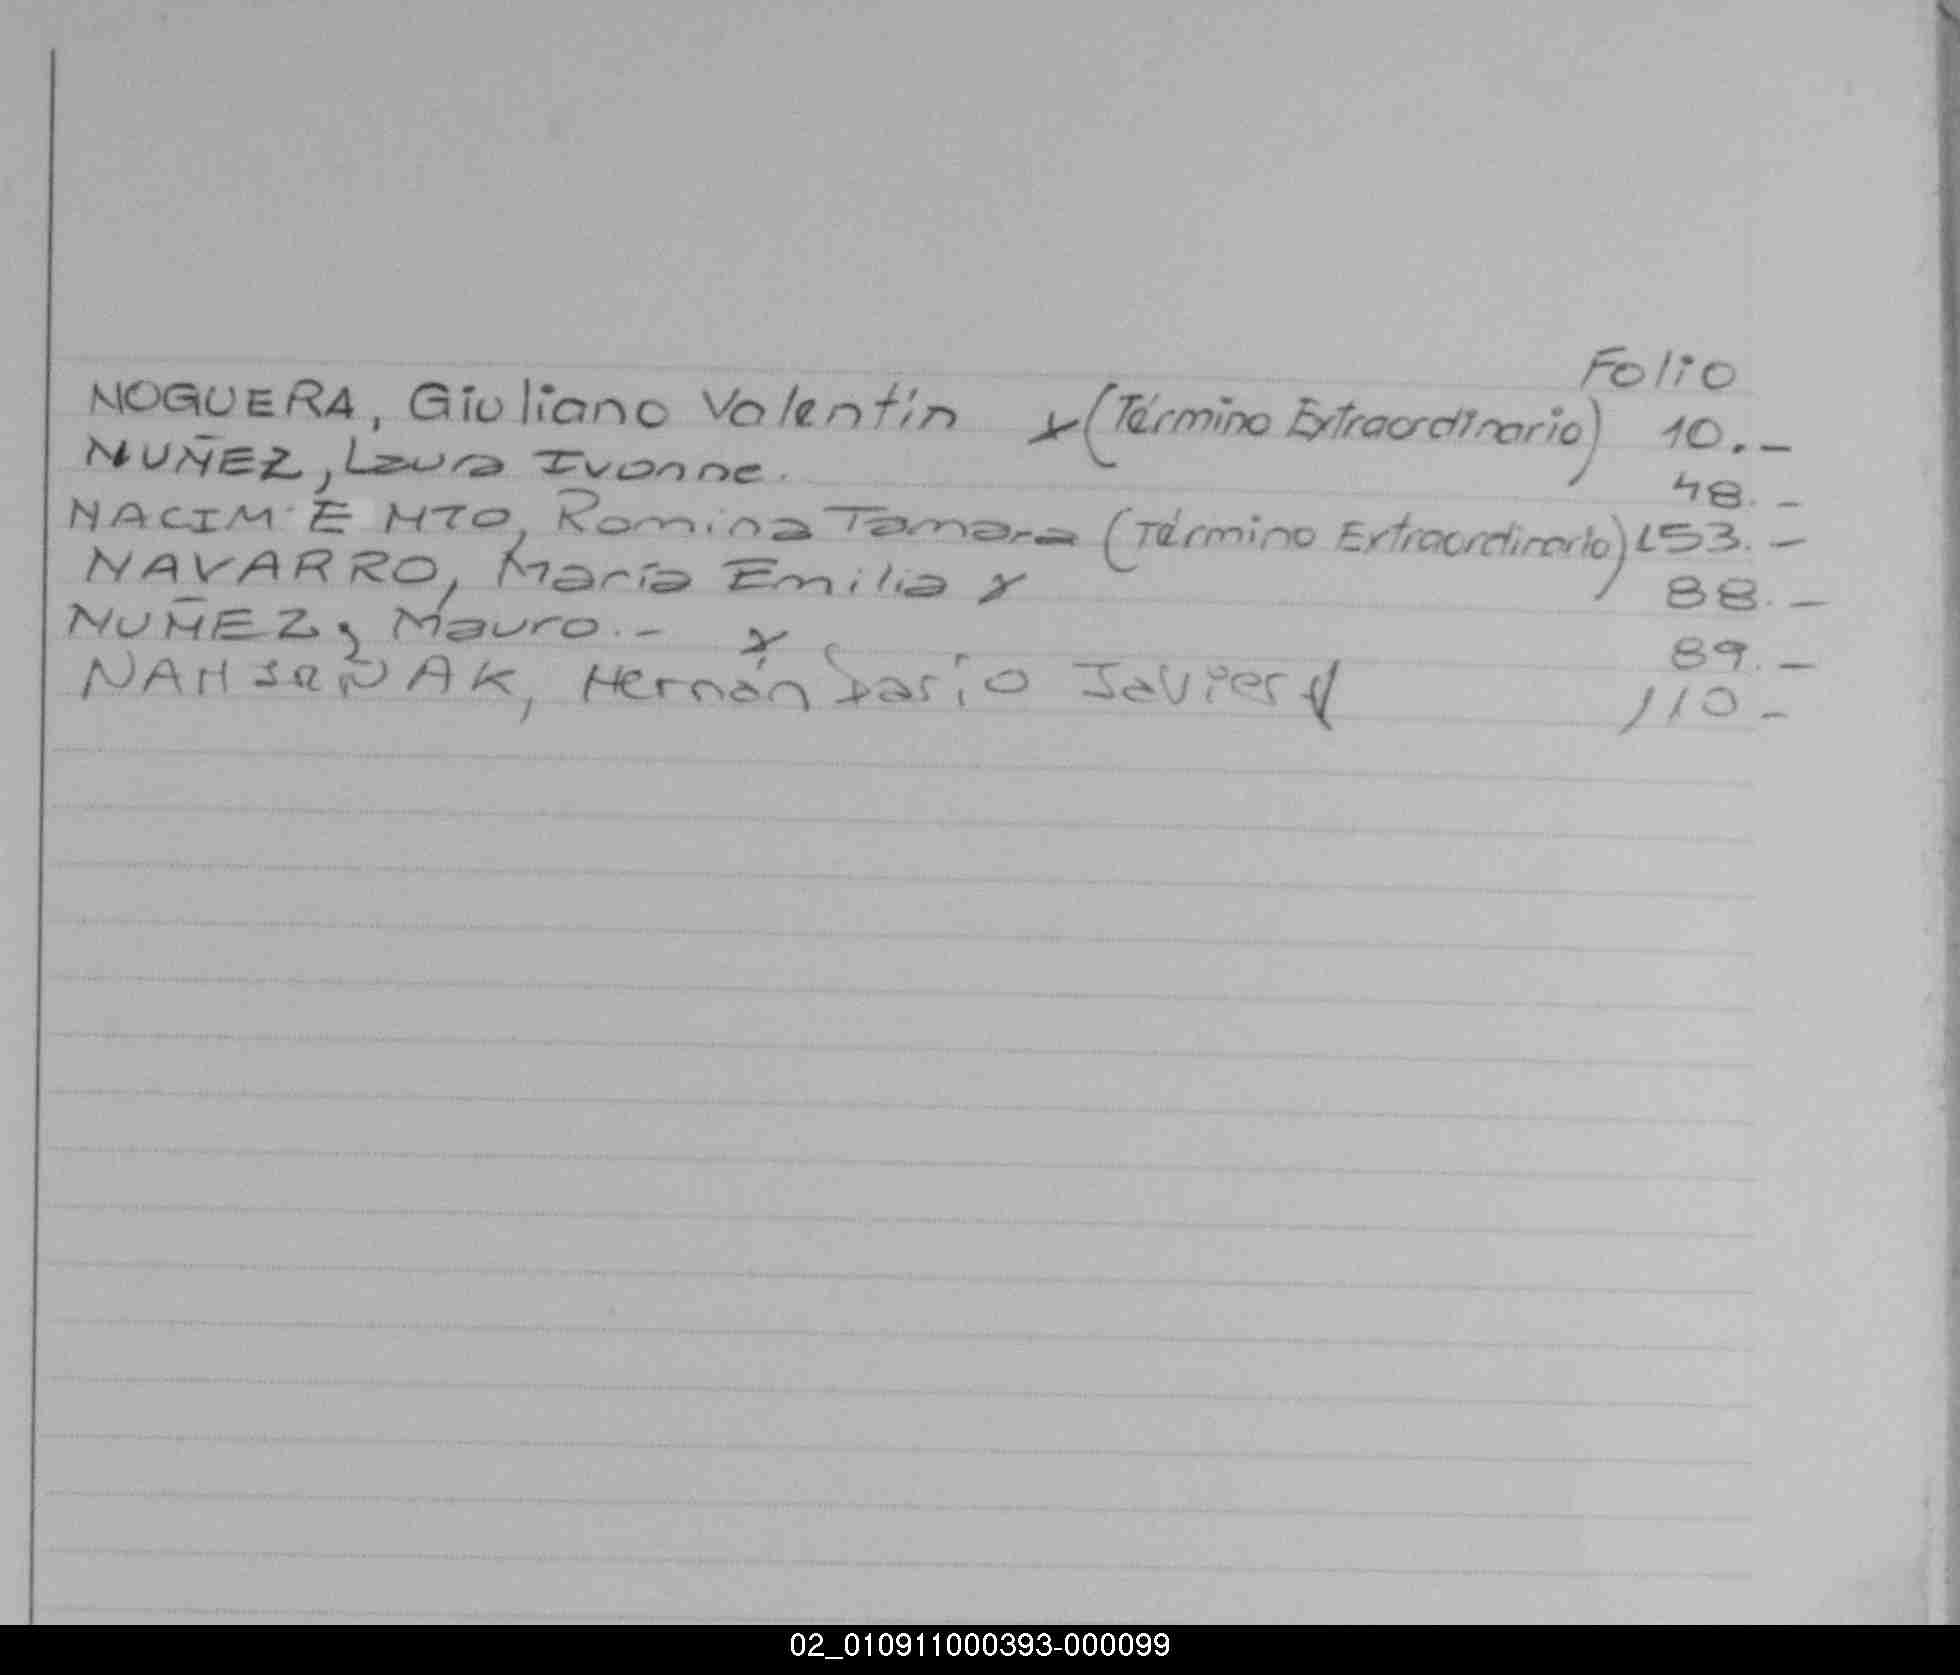 Folio
NOGUERA, Giuliano Valentín x (Término Extraordinario) 10.-
NUÑEZ, Laura Ivonne. 48.-
NACIM E NTO, Romina Tamara (Término Extraordinario) 153.-
NAVARRO, María Emilia x 88.-
NUÑEZ, Mauro.- x 89.-
Hernán Darío Javier 110-
02_010911000393-000099